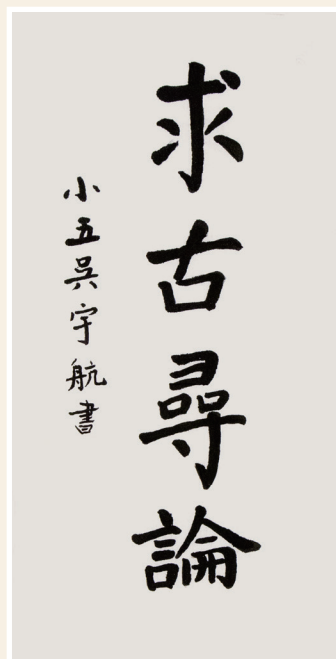 求古尋論
小五吳宇航書